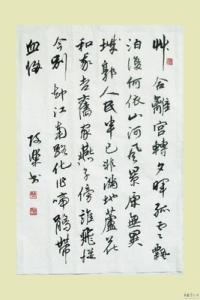 艸合離宮轉夕暉孤雲飄
泊復何依山河風景原無異
城郭人民半已非滿地蘆花
和我老舊家燕子傍誰飛從
今別却江南路化作啼鵑帶
血歸